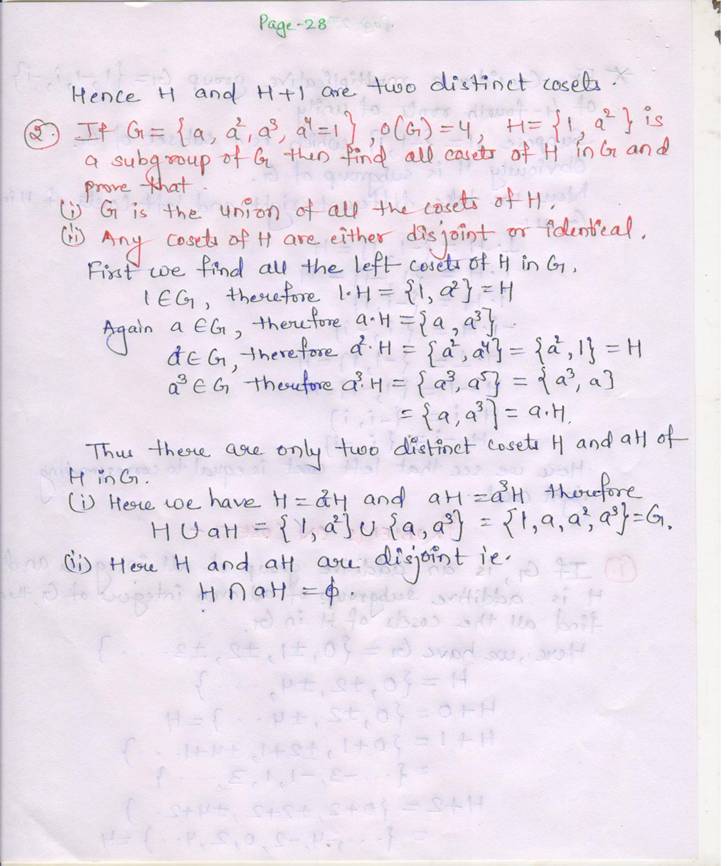 Page-28
Hence H and H+1 are two distinct cosets.
2. If G = {a, a², a³, a⁴=1}, o(G)=4, H={1, a²} is
a subgroup of G then find all cosets of H in G and
prove that.
(i) G is the union of all the cosets of H.
(ii) Any cosets of H are either disjoint or identical.
First we find all the left cosets of H in G.
1∈G, therefore 1·H = {1, a²} = H
Again a∈G, therefore a·H = {a, a³}
a²∈G, therefore a²·H = {a², a⁴} = {a², 1} = H
a³∈G therefore a³·H = {a³, a⁵} = {a³, a}
= {a, a³} = a·H.
Thus there are only two distinct cosets H and aH of
H in G.
(i) Here we have H = a²H and aH = a³H therefore
H ∪ aH = {1, a²} ∪ {a, a³} = {1, a, a², a³} = G.
(ii) Here H and aH are disjoint ie.
H ∩ aH = ϕ.